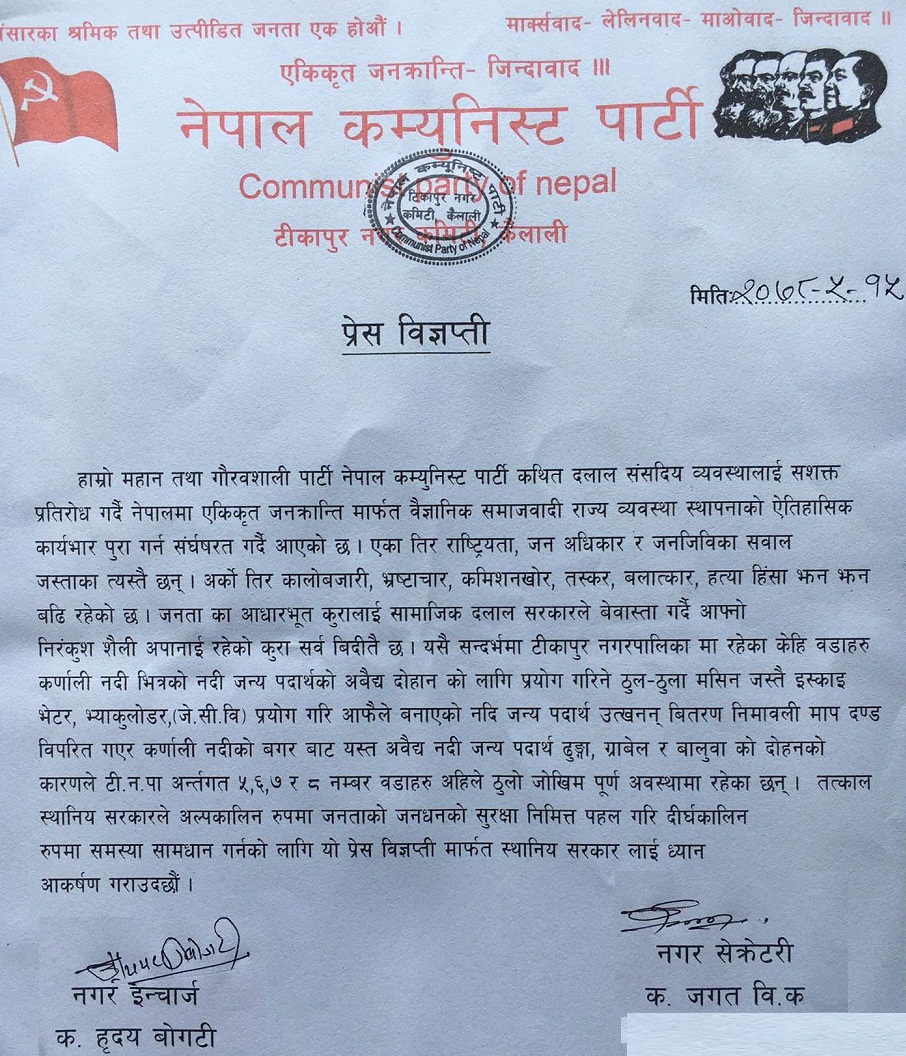 ंसारका श्रमिक तथा उत्पीडित जनता एक होऔं ।
मार्क्सवाद- लेलिनवाद- माओवाद- जिन्दावाद ॥
एकिकृत जनक्रान्ति- जिन्दावाद ॥।
नेपाल कम्युनिस्ट पार्टी
Communist party of nepal
टीकापुर नगर कमिटी, कैलाली
नेपाल कम्यूनिष्ट पार्टी
टिकापुर नगर
कमिटी, कैलाली
Communist Party of Nepal
मिति:२०७८-५-१५
प्रेस विज्ञप्ती
हाम्रो महान तथा गौरवशाली पार्टी नेपाल कम्युनिस्ट पार्टी कथित दलाल संसदिय व्यवस्थालाई सशक्त
प्रतिरोध गर्दै नेपालमा एकिकृत जनक्रान्ति मार्फत वैज्ञानिक समाजवादी राज्य व्यवस्था स्थापनाको ऐतिहासिक
कार्यभार पुरा गर्न संर्घषरत गर्दै आएको छ । एका तिर राष्ट्रियता, जन अधिकार र जनजिविका सवाल
जस्ताका त्यस्तै छन् । अर्को तिर कालोबजारी, भ्रष्टाचार, कमिशनखोर, तस्कर, बलात्कार, हत्या हिंसा झन झन
बढि रहेको छ । जनता का आधारभूत कुरालाई सामाजिक दलाल सरकारले बेवास्ता गर्दै आफ्नो
निरंकुश शैली अपानाई रहेको कुरा सर्व बिदीतै छ । यसै सन्दर्भमा टीकापुर नगरपालिका मा रहेका केहि वडाहरु
कर्णाली नदी भित्रको नदी जन्य पदार्थको अवैद्य दोहान को लागि प्रयोग गरिने ठुल-ठुला मसिन जस्तै इस्काइ
भेटर, भ्याकुलोडर,(जे.सी.वि) प्रयोग गरि आफैले बनाएको नदि जन्य पदार्थ उत्खनन् बितरण निमावली माप दण्ड
विपरित गएर कर्णाली नदीको बगर बाट यस्त अवैद्य नदी जन्य पदार्थ ढुङ्गा, ग्राबेल र बालुवा को दोहनको
कारणले टी.न.पा अर्न्तगत ५,६,७ र ८ नम्बर वडाहरु अहिले ठुलो जोखिम पूर्ण अवस्थामा रहेका छन् । तत्काल
स्थानिय सरकारले अल्पकालिन रुपमा जनताको जनधनको सुरक्षा निमित्त पहल गरि दीर्घकालिन
रुपमा समस्या सामधान गर्नको लागि यो प्रेस विज्ञप्ती मार्फत स्थानिय सरकार लाई ध्यान
आकर्षण गराउदछौं ।
नगर ईन्चार्ज
क. हृदय बोगटी
नगर सेक्रेटरी
क. जगत वि.क